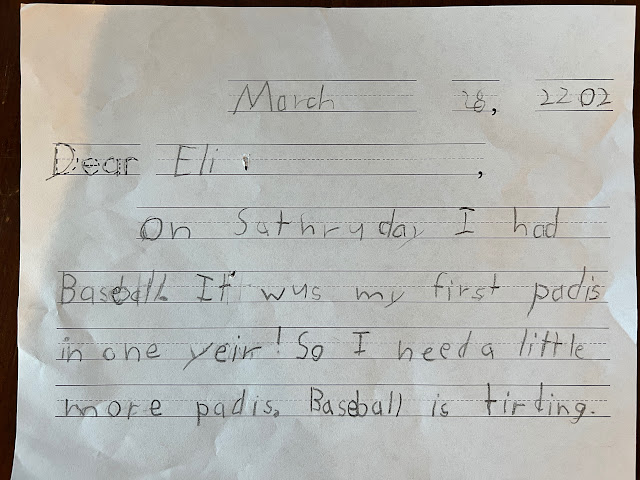 March 28, 2202
Dear Eli,
On Sathruday I had
Baseball. It wus my first padis
in one yeir! So I need a little
more padis. Baseball is tirding.